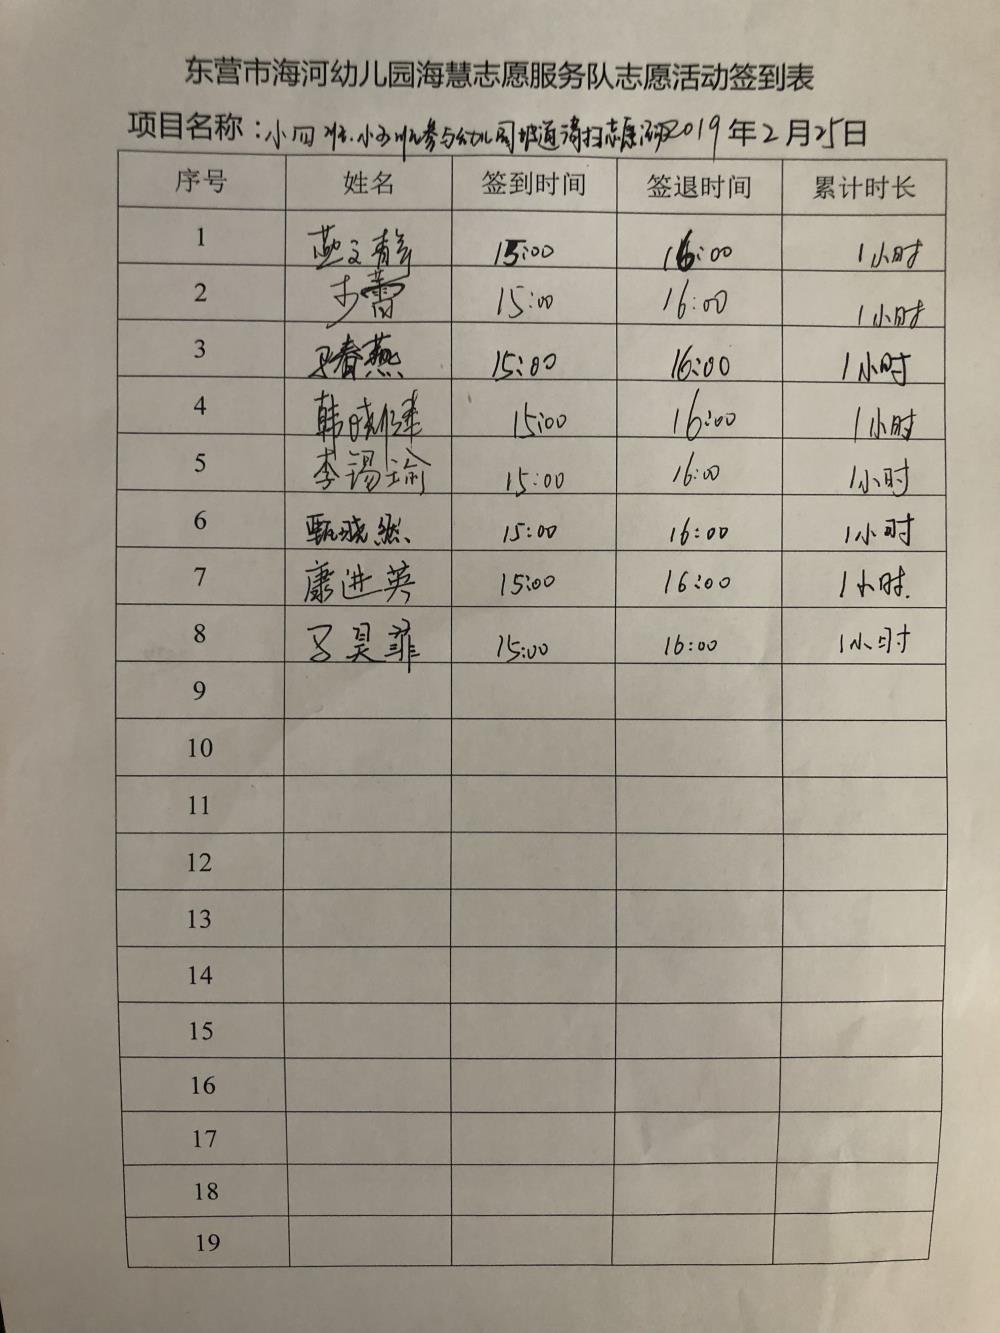 东营市海河幼儿园海慧志愿服务队志愿活动签到表
项目名称：小四班.小五班参与幼儿园坡道清扫志愿活动2019年2月25日
序号 姓名 签到时间 签退时间 累计时长
1 燕文静 15:00 16:00 1小时
2 蕾 15:00 16:00 1小时
3 春燕 15:00 16:00 1小时
4 韩晓 15:00 16:00 1小时
5 李锡瑜 15:00 16:00 1小时
6 甄晓然 15:00 16:00 1小时
7 康进英 15:00 16:00 1小时.
8 昊菲 15:00 16:00 1小时
9
10
11
12
13
14
15
16
17
18
19